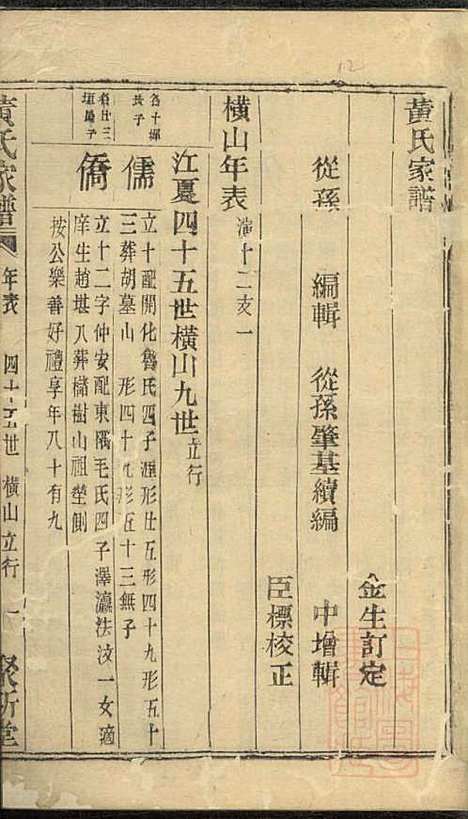 12
黃氏家譜
金生訂定
從孫 編輯 從孫肇基續編 中增輯
臣標校正
橫山年表 溰十二亥一
江夏四十五世橫山九世 立行
長子
儒 立十配開化魯氏四子 形廿五形四十九形五十
三葬胡墓山 形四十九形五十三無子
垣
僑 立十二字仲安配東隅毛氏四子澤瀛法汶一女適
庠生趙堪八葬櫧樹山祖塋側
按公樂善好禮享年八十有九
黃氏家譜 年表 四十五世 橫山立行 一 聚斯堂